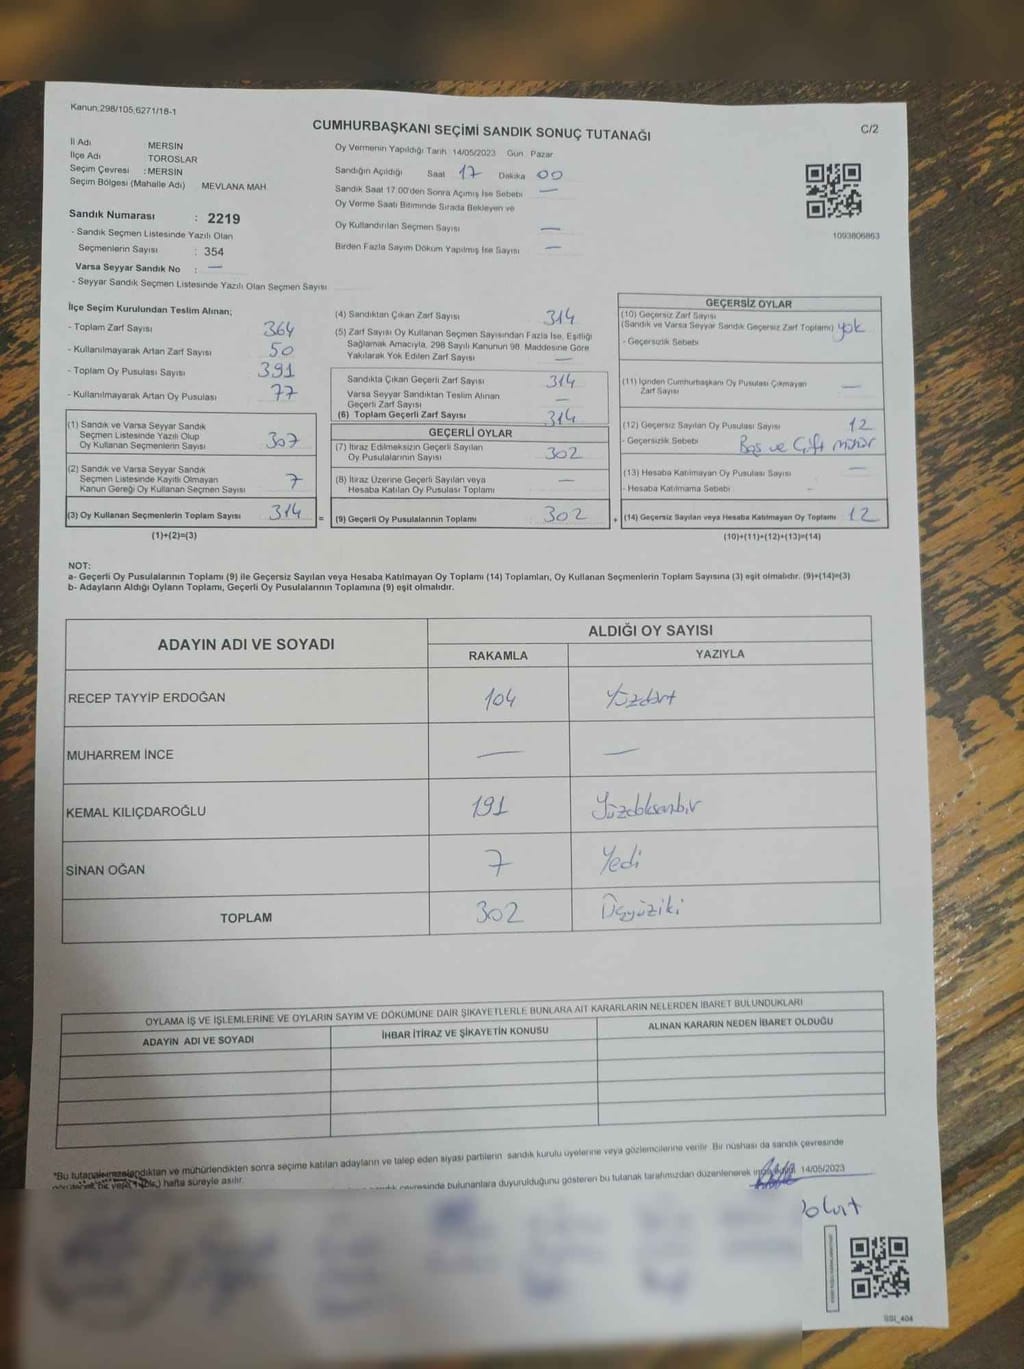 Kanun,298/105,6271/18-1
C/2
CUMHURBAŞKANI SEÇİMİ SANDIK SONUÇ TUTANAĞI
İl Adı MERSİN
İlçe Adı TOROSLAR
Seçim Çevresi : MERSİN
Seçim Bölgesi (Mahalle Adı) MEVLANA MAH.
Sandık Numarası : 2219
- Sandık Seçmen Listesinde Yazılı Olan
Seçmenlerin Sayısı : 354
Varsa Seyyar Sandık No : —
- Seyyar Sandık Seçmen Listesinde Yazılı Olan Seçmen Sayısı
Oy Vermenin Yapıldığı Tarih 14/05/2023 Gün Pazar
Sandığın Açıldığı Saat 17 Dakika 00
Sandık Saat 17.00'den Sonra Açımış İse Sebebi —
Oy Verme Saati Bitiminde Sırada Bekleyen ve
Oy Kullandırılan Seçmen Sayısı —
Birden Fazla Sayım Döküm Yapılmış İse Sayısı —
1093806863
İlçe Seçim Kurulundan Teslim Alınan;
- Toplam Zarf Sayısı 364
- Kullanılmayarak Artan Zarf Sayısı 50
- Toplam Oy Pusulası Sayısı 391
- Kullanılmayarak Artan Oy Pusulası 77
(1) Sandık ve Varsa Seyyar Sandık
Seçmen Listesinde Yazılı Olup
Oy Kullanan Seçmenlerin Sayısı 307
(2) Sandık ve Varsa Seyyar Sandık
Seçmen Listesinde Kayıtlı Olmayan
Kanun Gereği Oy Kullanan Seçmen Sayısı 7
(3) Oy Kullanan Seçmenlerin Toplam Sayısı 314 =
(1)+(2)=(3)
(4) Sandıktan Çıkan Zarf Sayısı 314
(5) Zarf Sayısı Oy Kullanan Seçmen Sayısından Fazla İse, Eşitliği
Sağlamak Amacıyla, 298 Sayılı Kanunun 98. Maddesine Göre
Yakılarak Yok Edilen Zarf Sayısı —
Sandıkta Çıkan Geçerli Zarf Sayısı 314
Varsa Seyyar Sandıktan Teslim Alınan
Geçerli Zarf Sayısı —
(6) Toplam Geçerli Zarf Sayısı 314
GEÇERLİ OYLAR
(7) İtiraz Edilmeksizin Geçerli Sayılan
Oy Pusulalarının Sayısı 302
(8) İtiraz Üzerine Geçerli Sayılan veya
Hesaba Katılan Oy Pusulası Toplamı —
(9) Geçerli Oy Pusulalarının Toplamı 302 +
GEÇERSİZ OYLAR
(10) Geçersiz Zarf Sayısı
(Sandık ve Varsa Seyyar Sandık Geçersiz Zarf Toplamı) yok
- Geçersizlik Sebebi
(11) İçinden Cumhurbaşkanı Oy Pusulası Çıkmayan
Zarf Sayısı —
(12) Geçersiz Sayılan Oy Pusulası Sayısı 12
- Geçersizlik Sebebi Boş ve Çift Mühür
(13) Hesaba Katılmayan Oy Pusulası Sayısı —
- Hesaba Katılmama Sebebi -
(14) Geçersiz Sayılan veya Hesaba Katılmayan Oy Toplamı 12
(10)+(11)+(12)+(13)=(14)
NOT:
a- Geçerli Oy Pusulalarının Toplamı (9) ile Geçersiz Sayılan veya Hesaba Katılmayan Oy Toplamı (14) Toplamları, Oy Kullanan Seçmenlerin Toplam Sayısına (3) eşit olmalıdır. (9)+(14)=(3)
b- Adayların Aldığı Oyların Toplamı, Geçerli Oy Pusulalarının Toplamına (9) eşit olmalıdır.
ADAYIN ADI VE SOYADI
ALDIĞI OY SAYISI
RAKAMLA YAZIYLA
RECEP TAYYİP ERDOĞAN 104 Yüzdört
MUHARREM İNCE — —
KEMAL KILIÇDAROĞLU 191 Yüzdoksanbir
SİNAN OĞAN 7 Yedi
TOPLAM 302 Üçyüziki
OYLAMA İŞ VE İŞLEMLERİNE VE OYLARIN SAYIM VE DÖKÜMÜNE DAİR ŞİKAYETLERLE BUNLARA AİT KARARLARIN NELERDEN İBARET BULUNDUKLARI
ADAYIN ADI VE SOYADI İHBAR İTİRAZ VE ŞİKAYETİN KONUSU ALINAN KARARIN NEDEN İBARET OLDUĞU
*Bu tutanak imzalandıktan ve mühürlendikten sonra seçime katılan adayların ve talep eden siyasi partilerin sandık kurulu üyelerine veya gözlemcilerine verilir. Bir nüshası da sandık çevresinde
hafta süreyle asılır.
çevresinde bulunanlara duyurulduğunu gösteren bu tutanak tarafımızdan düzenlenerek 14/05/2023
SSI_404